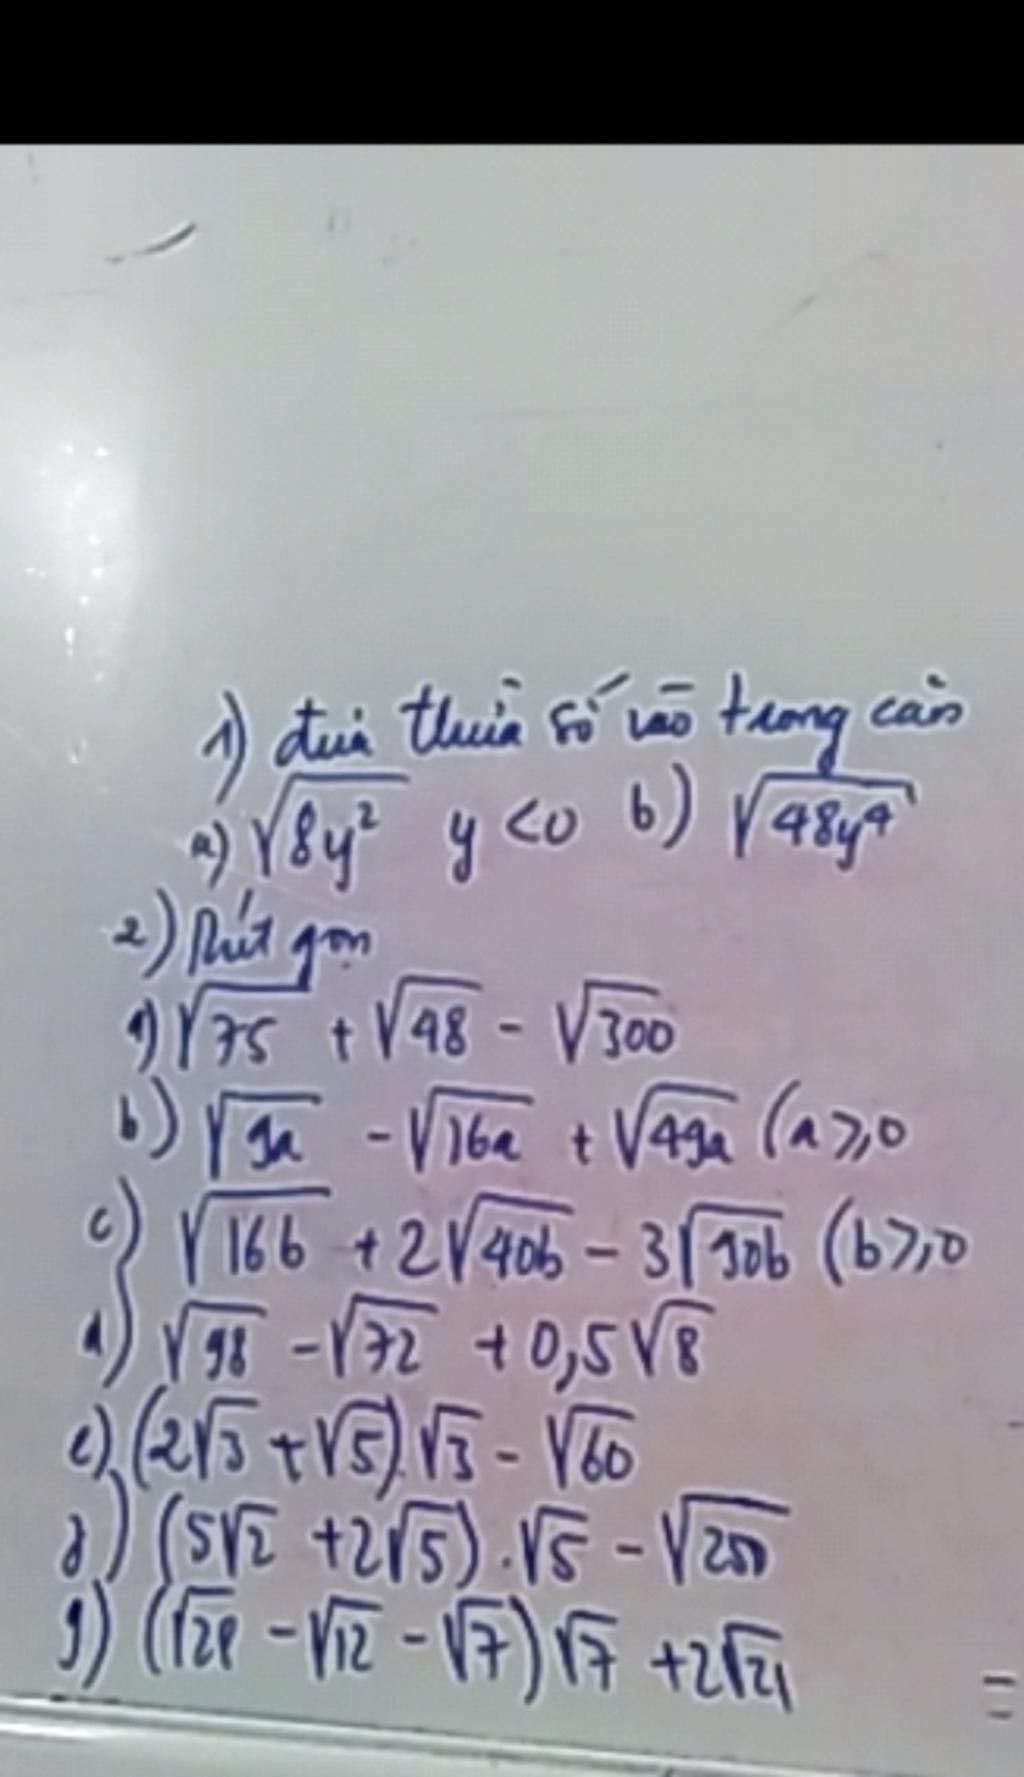 1) đưa thừa số vào trong căn
a) √8y² y <0 b) √48y⁴
2) Rút gọn
a) √75 + √48 - √300
b) √9a - √16a + √49a (a ≥ 0
c) √16b + 2√40b - 3√90b (b ≥ 0
d) √98 - √72 + 0,5√8
e) (2√3 + √5).√3 - √60
f) (5√2 + 2√5).√5 - √250
g) (√28 - √12 - √7)√7 + 2√21